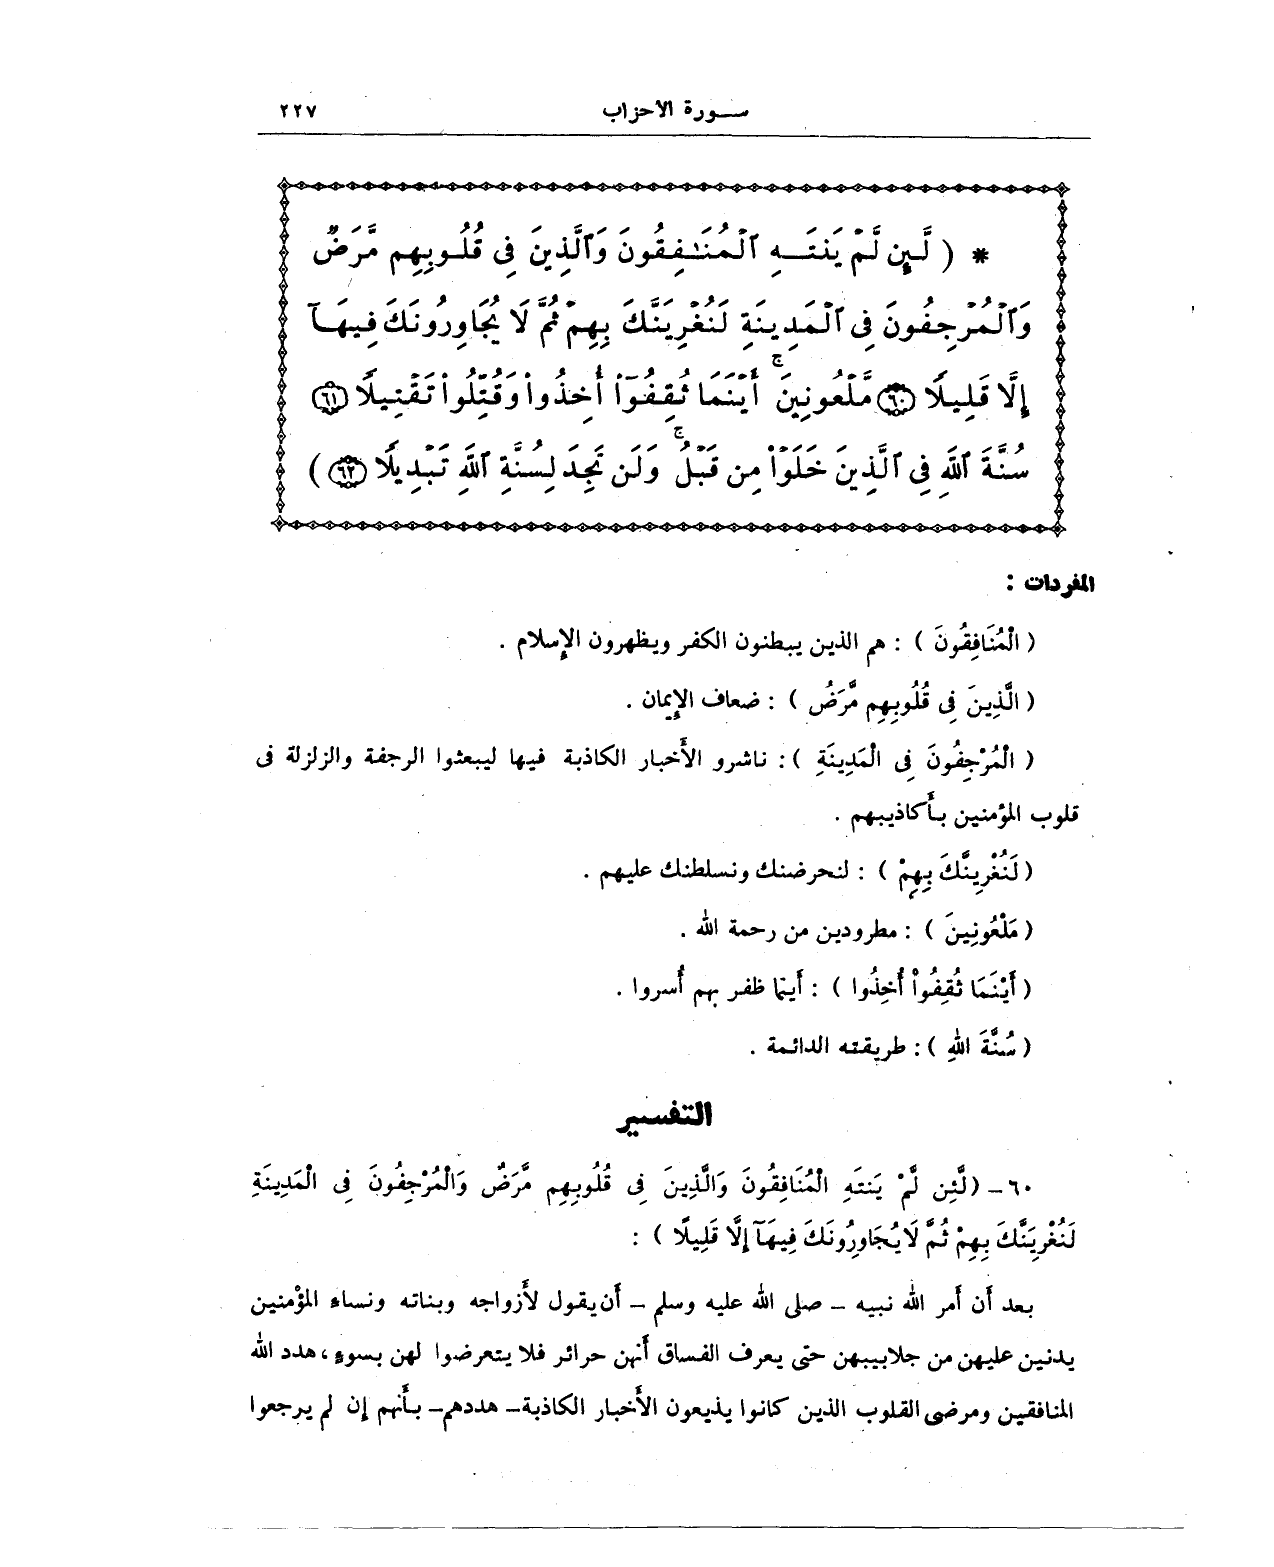 سورة الاحزاب ٢٢٧
* ( لَّئِن لَّمْ يَنتَهِ ٱلْمُنَـٰفِقُونَ وَٱلَّذِينَ فِى قُلُوبِهِم مَّرَضٌ
وَٱلْمُرْجِفُونَ فِى ٱلْمَدِينَةِ لَنُغْرِيَنَّكَ بِهِمْ ثُمَّ لَا يُجَاوِرُونَكَ فِيهَآ
إِلَّا قَلِيلًا ۝٦٠ مَّلْعُونِينَ ۚ أَيْنَمَا ثُقِفُوٓا۟ أُخِذُوا۟ وَقُتِّلُوا۟ تَقْتِيلًا ۝٦١
سُنَّةَ ٱللَّهِ فِى ٱلَّذِينَ خَلَوْا۟ مِن قَبْلُ ۚ وَلَن تَجِدَ لِسُنَّةِ ٱللَّهِ تَبْدِيلًا ۝٦٢ )
المفردات :
( الْمُنَافِقُونَ ) : هم الذين يبطنون الكفر ويظهرون الإسلام .
( الَّذِينَ فِى قُلُوبِهِم مَّرَضُ ) : ضعاف الإيمان .
( الْمُرْجِفُونَ فِى الْمَدِينَةِ ) : ناشرو الأَخبار الكاذبة فيها ليبعثوا الرجفة والزلزلة فى
قلوب المؤمنين بأَكاذيبهم .
( لَنُغْرِيَنَّكَ بِهِمْ ) : لنحرضنك ونسلطنك عليهم .
( مَلْعُونِينَ ) : مطرودين من رحمة الله .
( أَيْنَمَا ثُقِفُواْ أُخِذُوا ) : أَينما ظفر بهم أُسروا .
( سُنَّةَ اللهِ ) : طريقته الدائمة .
التفسير
٦٠ – ( لَّئِن لَّمْ يَنتَهِ الْمُنَافِقُونَ وَالَّذِينَ فِى قُلُوبِهِم مَّرَضٌ وَالْمُرْجِفُونَ فِى الْمَدِينَةِ
لَنُغْرِيَنَّكَ بِهِمْ ثُمَّ لَا يُجَاوِرُونَكَ فِيهَآ إِلَّا قَلِيلًا ) :
بعد أَن أَمر الله نبيه – صلى الله عليه وسلم – أَن يقول لأَزواجه وبناته ونساء المؤْمنين
يدنين عليهن من جلابيبهن حتى يعرف الفساق أَنهن حرائر فلا يتعرضوا لهن بسوءٍ ، هدد الله
المنافقين ومرضى القلوب الذين كانوا يذيعون الأَخبار الكاذبة – هددهم – بأَنهم إن لم يرجعوا